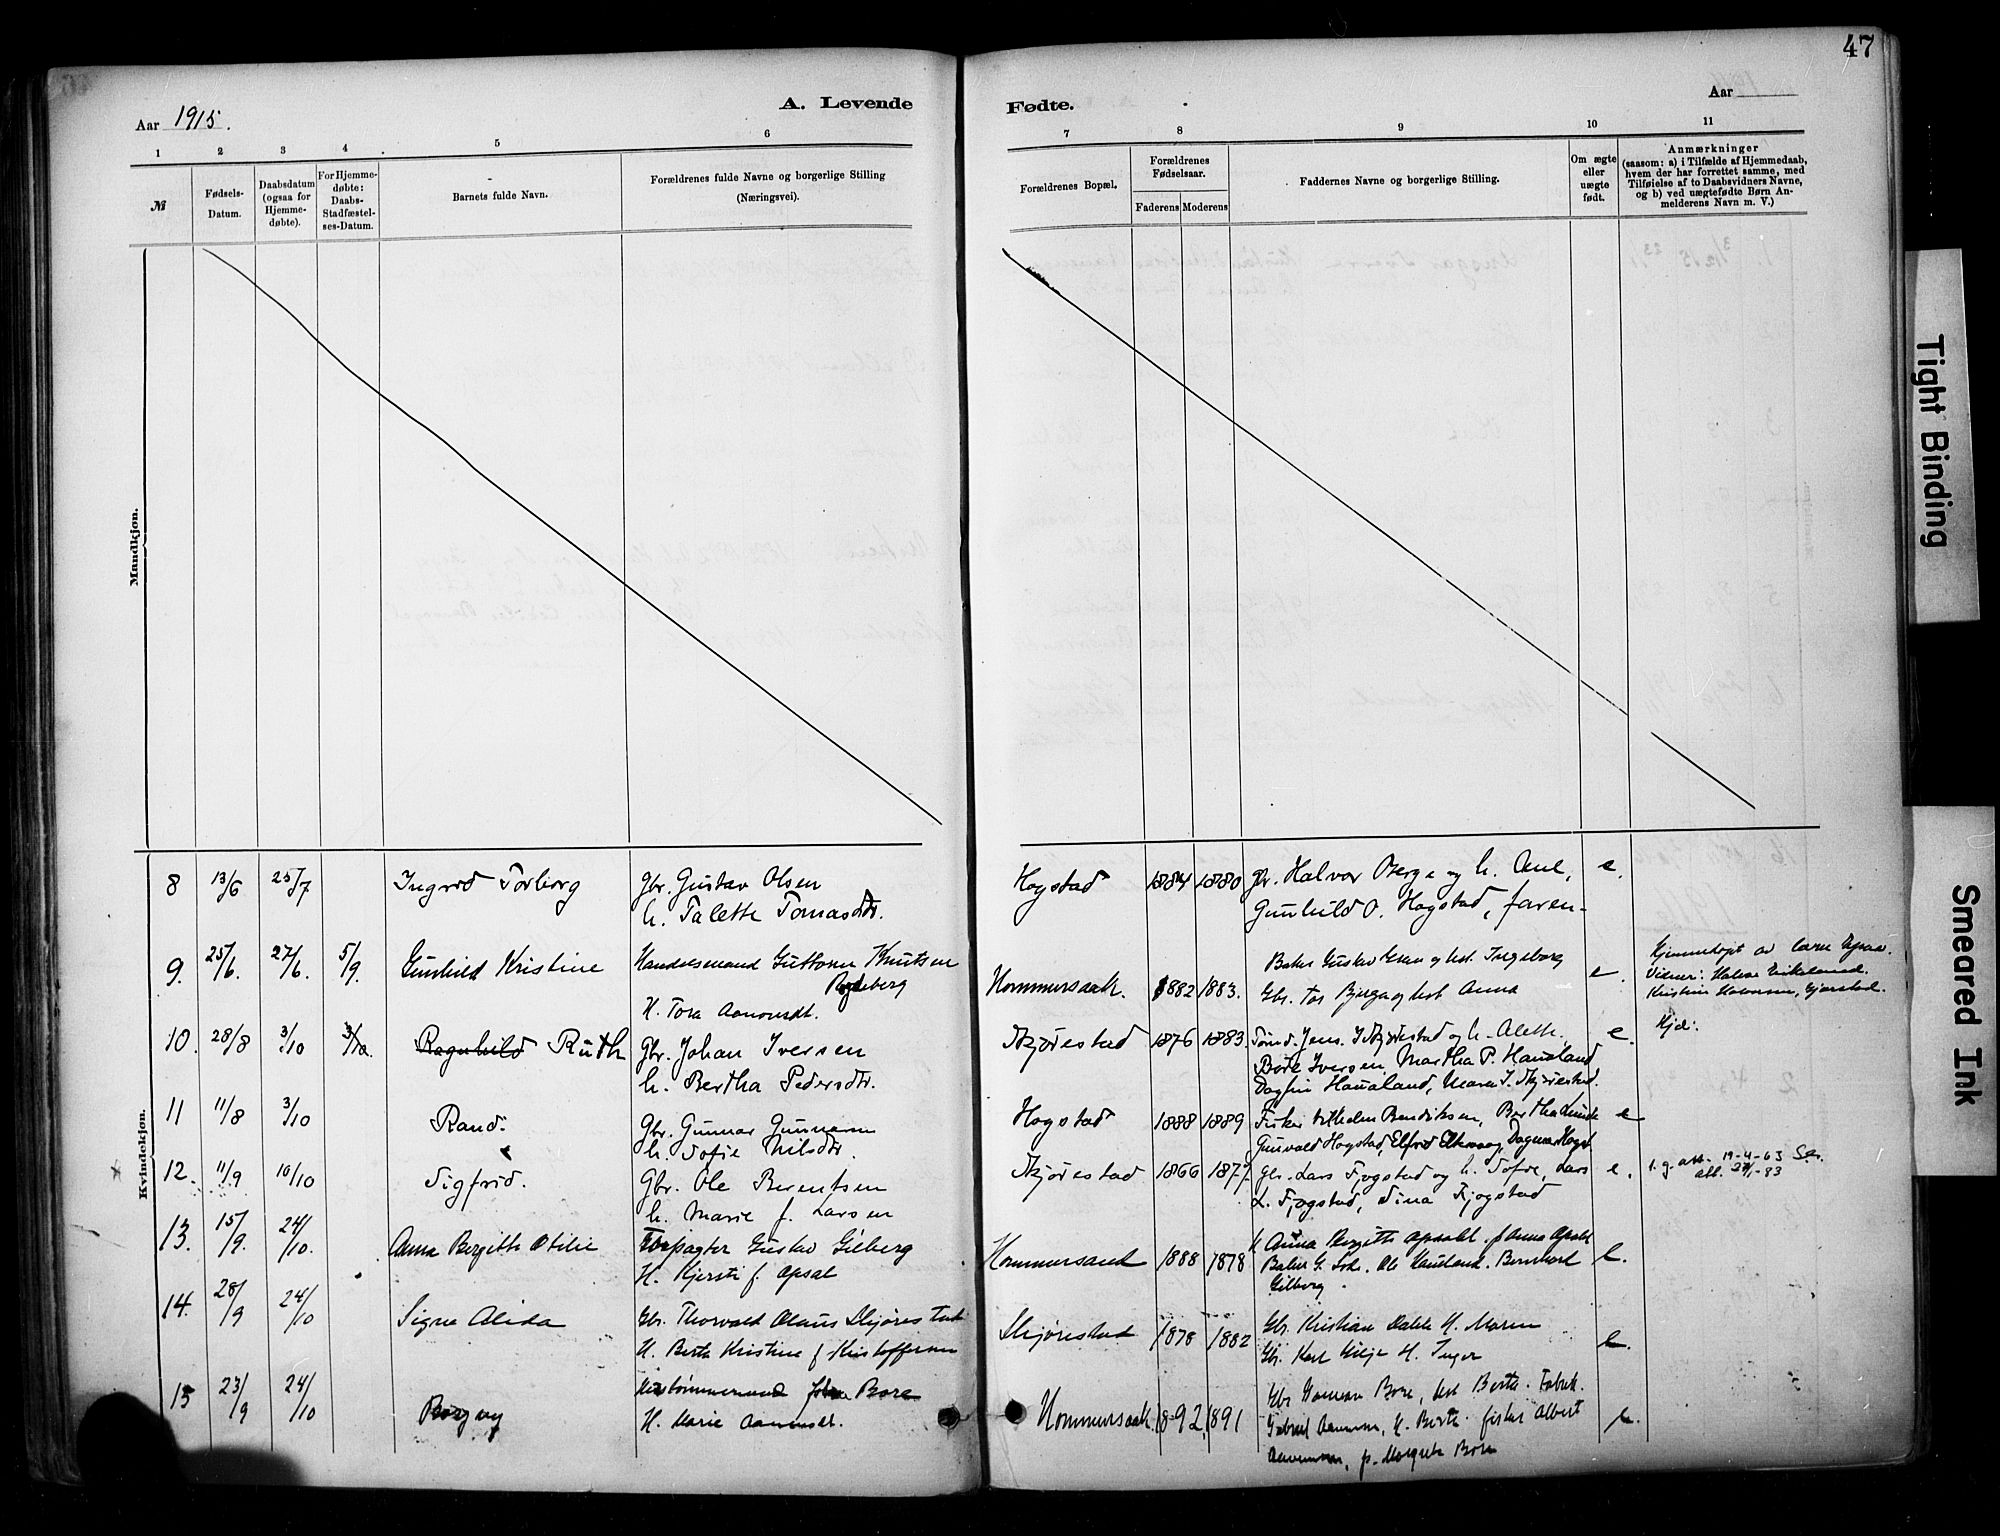 47
Aar 1915.
A. Levende
Fødte.
Aar
1 2 3 4 5 6 7 8 9 10 11
№
Fødsels-Datum.
Daabsdatum (ogsaa for Hjemme-døbte).
For Hjemme-døbte: Daabs-Stadfæstel-ses-Datum.
Barnets fulde Navn.
Forældrenes fulde Navne og borgerlige Stilling
(Næringsvei).
Forældrenes Bopæl.
Forældrenes Fødselsaar.
Faderens Moderens
Faddernes Navne og borgerlige Stilling.
Om ægte eller uægte født.
Anmærkninger
(saasom: a) i Tilfælde af Hjemmedaab,
hvem der har forrettet samme, med
Tilføielse af to Daabsvidners Navne,
og b) ved uægtefødte Børn An-
melderens Navn m. V.)
Mandkjøn.
Kvindekjøn.
8 13/6 25/7 Ingrid Torborg Gbr. Gustav Olsen Hogstad 1884 1880 Gbr. Halvor Berge og h. Ane, e.
h. Talette Tomasdtr. Gunhild O. Hogstad, faren-
9. 25/6. 27/6. 5/9. Gunhild Kristine Handelsmand Guttorm Knutsen Hommersaak. 1882 1883. Baker Gustav og hst. Ingeborg e.
H. Tora Gbr. Tor Bjerga og hst Anna
Hjemmedøpt av
Vidner:
Kristine
10. 28/8 3/10 3/10. Ragnhild Ruth Gbr. Johan Iversen Skjørestad 1876 1883. Jens I Skjørestad og h. Alette. e. Hjd:.
h. Bertha Pedersdtr. Børe Iversen, Martha P. Haualand
Dagfin Haualand, Maren I. Skjørestad.
11 11/8 3/10 Randi Gbr. Gunnar Gunnarsen Hogstad 1888 1889 Fisker Vilhelm Bendiksen, Bertha e
h. Sofie Nilsdtr. Gunvald Hogstad, Elfrid Dagmar Hogst.
12. 11/9 10/10 Sigfrid. Gbr. Ole Berentsen Skjørestad 1866 1877. Gbr. Lars Fjogstad og h. Sofie, Lars e. l. g. att. 19-4-63
h. Marie f. Larsen L. Fjogstad, Sina Fjogstad
13. 15/9. 24/10. Anna Bergitte Otilie Forpagter Gustav Gilberg Hommersaak 1888 1878 Anna Bergitte Apsahl. e.
H. Kjersti f. Apsal Baker G. Ole Haualand. Bernhard
Gilberg.
14. 28/9 24/10 Signe Alida Gbr. Thorvald Olaus Skjørestad Skjørestad 1878 1882 Gbr. Kristian Dahle H. Maren e.
H. Berte Kristine f Kristoffersen Gbr. Karl Gilje H. Inger
15 23/9 24/10 Borgny Bore Hommersaak 1892 1891 Gbr Bore, hst Berte. Fabrik. e.
H. Marie Gabriel H. Berte. fisker Albert
p. Margrete Bore
Tight Binding
Smeared Ink